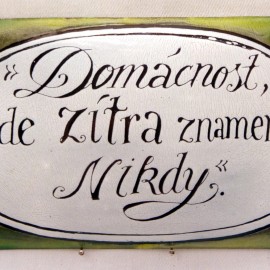 »Domácnost,
de zítra znamen
Nikdy.«